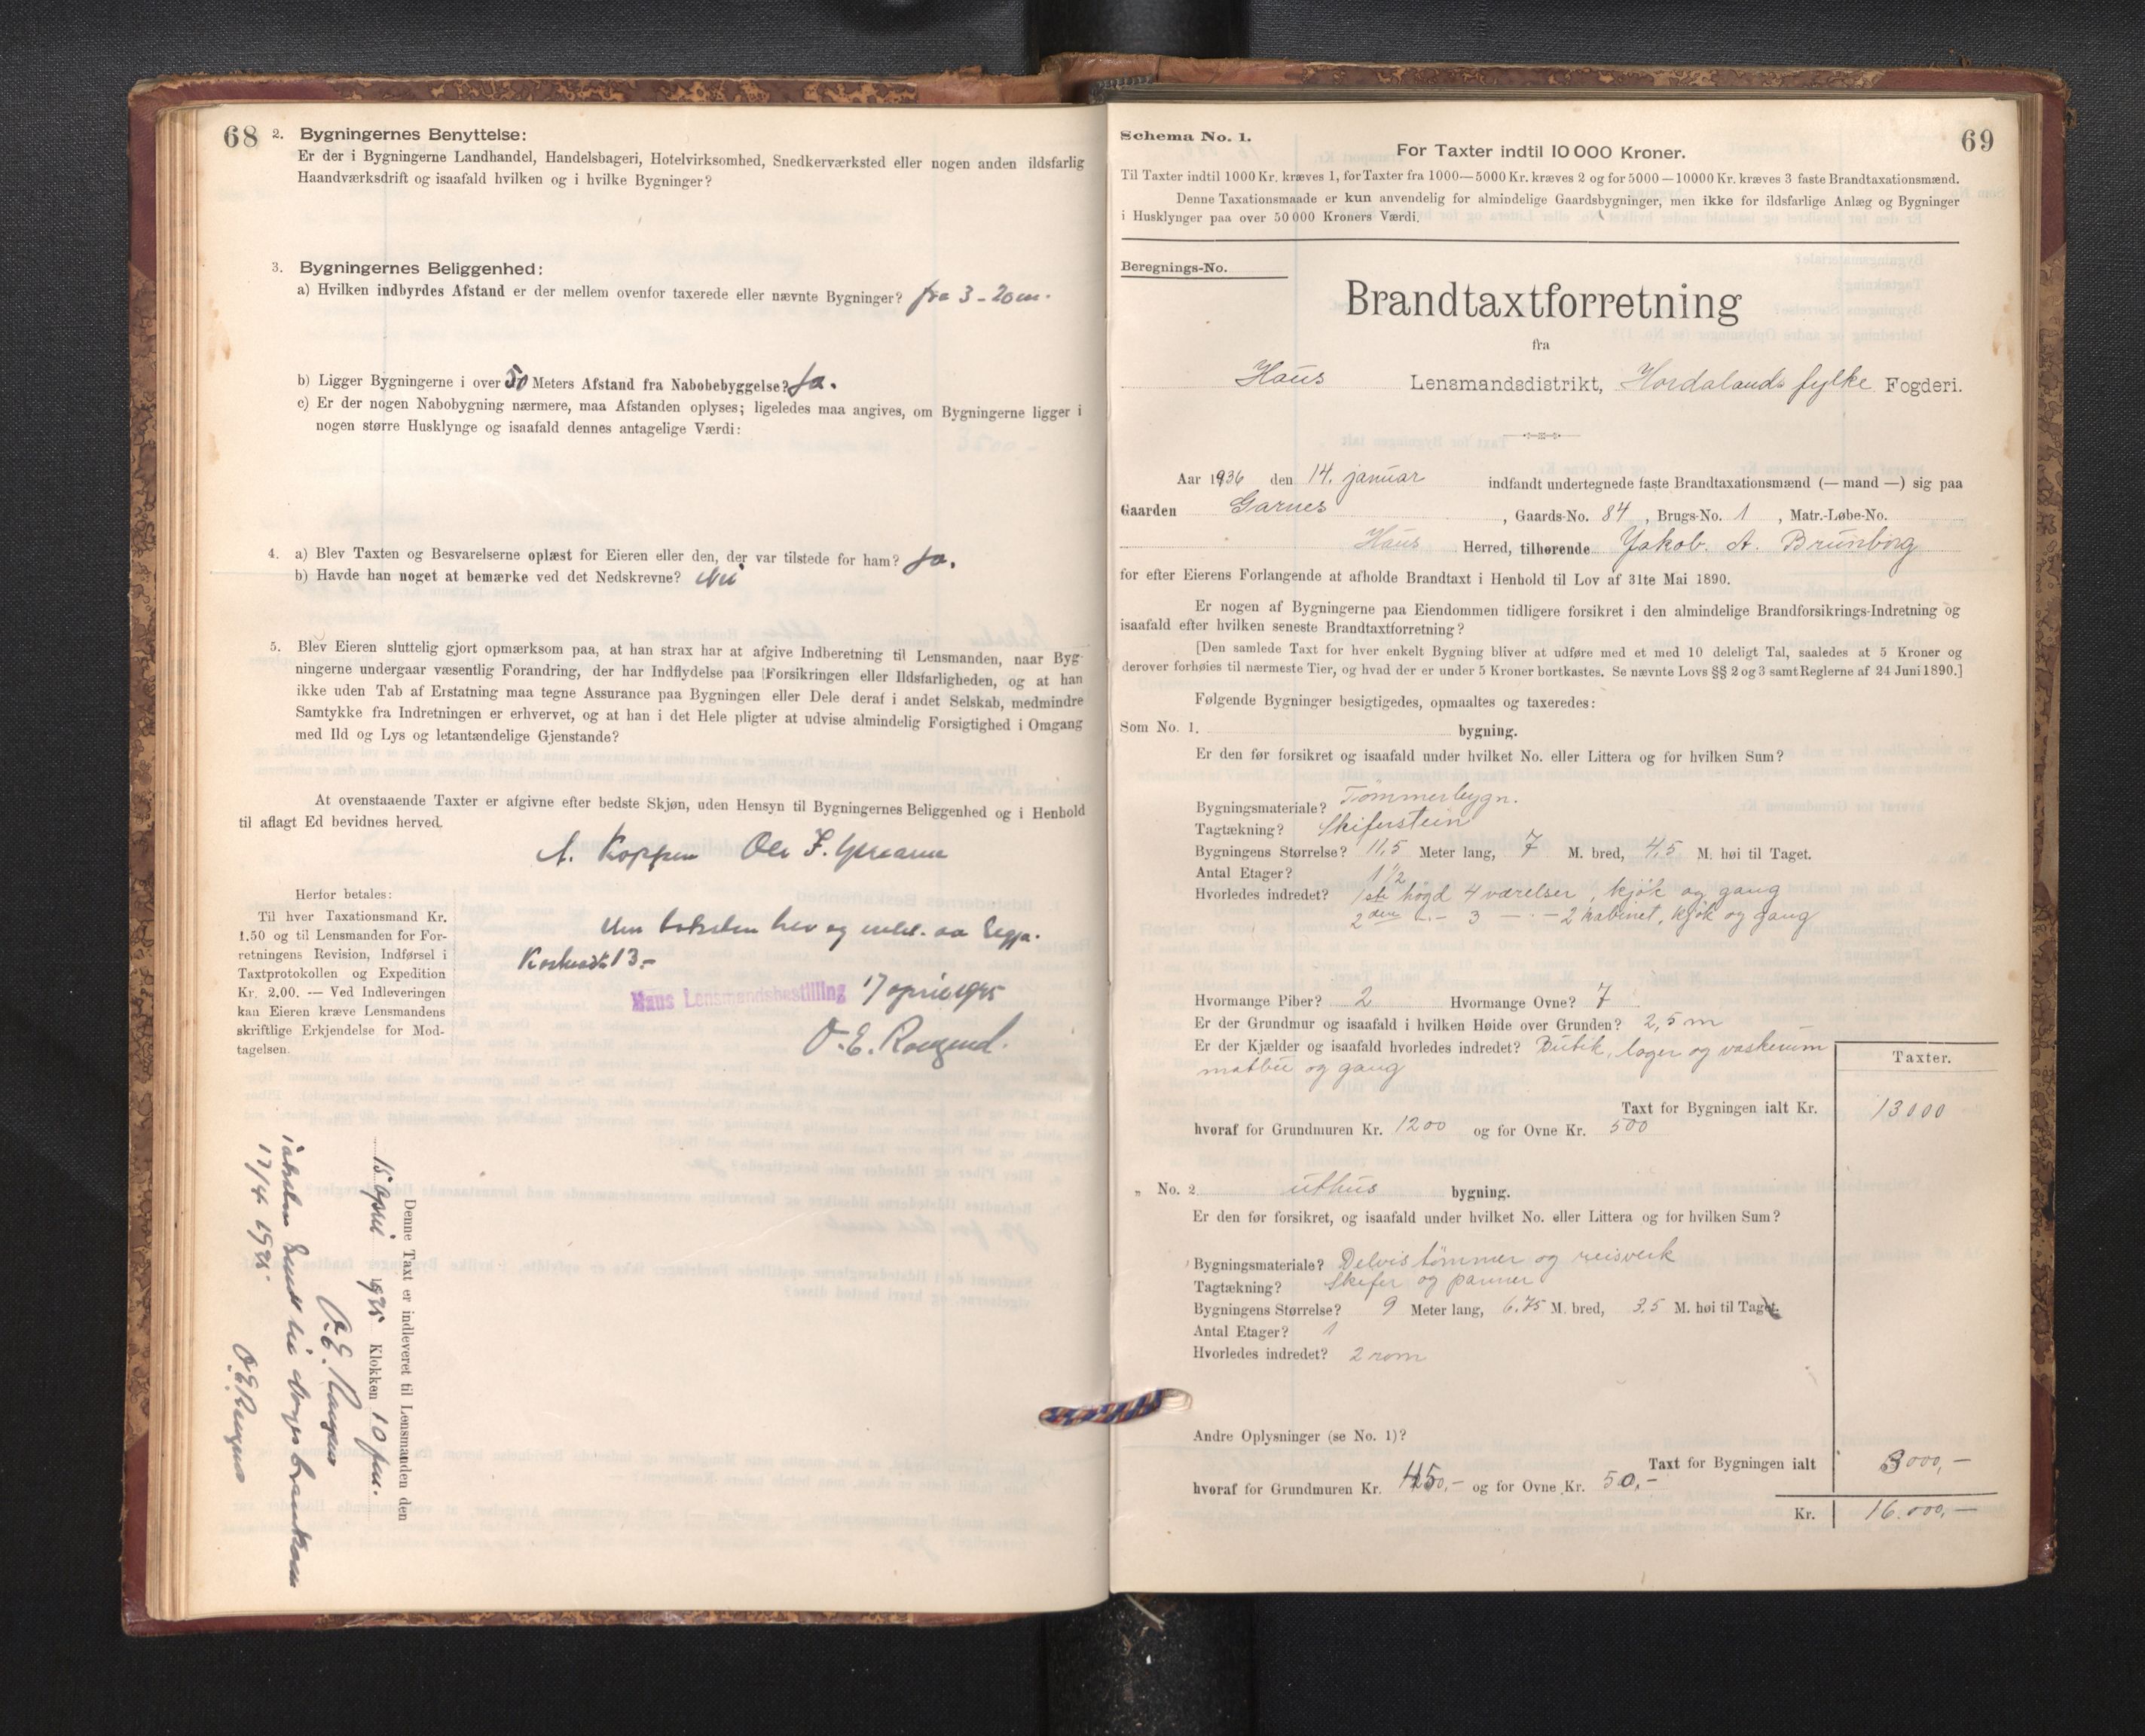 68
2. Bygningernes Benyttelse:
Er der i Bygningerne Landhandel, Handelsbageri, Hotelvirksomhed, Snedkerværksted eller nogen anden ildsfarlig
Haandværksdrift og isaafald hvilken og i hvilke Bygninger?
3. Bygningernes Beliggenhed:
a) Hvilken indbyrdes Afstand er der mellem ovenfor taxerede eller nævnte Bygninger? fra 3-20 m.
b) Ligger Bygningerne i over 50 Meters Afstand fra Nabobebyggelse? Ja.
c) Er der nogen Nabobygning nærmere, maa Afstanden oplyses; ligeledes maa angives, om Bygningerne ligger i
nogen større Husklynge og isaafald dennes antagelige Værdi:
4. a) Blev Taxten og Besvarelserne oplæst for Eieren eller den, der var tilstede for ham? Ja.
b) Havde han noget at bemærke ved det Nedskrevne? Nei
5. Blev Eieren sluttelig gjort opmærksom paa, at han strax har at afgive Indberetning til Lensmanden, naar Byg-
ningerne undergaar væsentlig Forandring, der har Indflydelse paa Forsikringen eller Ildsfarligheden, og at han
ikke uden Tab af Erstatning maa tegne Assurance paa Bygningen eller Dele deraf i andet Selskab, medmindre
Samtykke fra Indretningen er erhvervet, og at han i det Hele pligter at udvise almindelig Forsigtighed i Omgang
med Ild og Lys og letantændelige Gjenstande?
At ovenstaaende Taxter er afgivne efter bedste Skjøn, uden Hensyn til Bygningernes Beliggenhed og i Henhold
til aflagt Ed bevidnes herved.
A. Koppen Ole F.
Herfor betales:
Til hver Taxationsmand Kr.
1.50 og til Lensmanden for For-
retningens Revision, Indførsel i
Taxtprotokollen og Expedition
Kr. 2.00. — Ved Indleveringen
kan Eieren kræve Lensmandens
skriftlige Erkjendelse for Mod-
tagelsen.
13.-
Haus Lensmandsbestilling 17 april 1935
O. E.
Denne Taxt er indleveret til Lensmanden den
15 april 1935 Klokken 10 fm.
O. E.
17/4 1935.
O. E.
69
Schema No. 1.
For Taxter indtil 10 000 Kroner.
Til Taxter indtil 1000 Kr. kræves 1, for Taxter fra 1000—5000 Kr. kræves 2 og for 5000—10000 Kr. kræves 3 faste Brandtaxationsmænd.
Denne Taxationsmaade er kun anvendelig for almindelige Gaardsbygninger, men ikke for ildsfarlige Anlæg og Bygninger
i Husklynger paa over 50 000 Kroners Værdi.
Beregnings-No.
Brandtaxtforretning
fra
Haus Lensmandsdistrikt, Hordalands fylke Fogderi.
Aar 1936 den 14. januar indfandt undertegnede faste Brandtaxationsmænd (— mand —) sig paa
Gaarden Garnes, Gaards-No. 84, Brugs-No. 1, Matr.-Løbe-No.
Haus Herred, tilhørende Jakob. A. Brunborg
for efter Eierens Forlangende at afholde Brandtaxt i Henhold til Lov af 31te Mai 1890.
Er nogen af Bygningerne paa Eiendommen tidligere forsikret i den almindelige Brandforsikrings-Indretning og
isaafald efter hvilken seneste Brandtaxtforretning?
[Den samlede Taxt for hver enkelt Bygning bliver at udføre med et med 10 deleligt Tal, saaledes at 5 Kroner og
derover forhøies til nærmeste Tier, og hvad der er under 5 Kroner bortkastes. Se nævnte Lovs §§ 2 og 3 samt Reglerne af 24 Juni 1890.]
Følgende Bygninger besigtigedes, opmaaltes og taxeredes:
Som No. 1. bygning.
Er den før forsikret og isaafald under hvilket No. eller Littera og for hvilken Sum?
Bygningsmateriale? Tømmerbygn.
Tagtækning? Skiferstein
Bygningens Størrelse? 11,5 Meter lang, 7 M. bred, 4,5 M. høi til Taget.
Antal Etager? 1 ½
Hvorledes indredet? 1ste høgd 4 værelser, kjøk og gang
2den —.— 3 —.— 2 kabinet, kjøk og gang
Hvormange Piber? 2 Hvormange Ovne? 7
Er der Grundmur og isaafald i hvilken Høide over Grunden? 2,5 m
Er der Kjælder og isaafald hvorledes indredet? Butik, lager og vaskerum
matbu og gang
Taxter.
Taxt for Bygningen ialt Kr. 13000
hvoraf for Grundmuren Kr. 1200 og for Ovne Kr. 500
„ No. 2 uthus bygning.
Er den før forsikret, og isaafald under hvilket No. eller Littera og for hvilken Sum?
Bygningsmateriale? Delvis tømmer og reisverk
Tagtækning? Skifer og panner
Bygningens Størrelse? 9 Meter lang, 6,75 M. bred, 3,5 M. høi til Taget.
Antal Etager? 1
Hvorledes indredet? 2 rom
Andre Oplysninger (se No. 1)?
Taxt for Bygningen ialt 3000,-
hvoraf for Grundmuren Kr. 450,- og for Ovne Kr. 50,-
Kr. 16.000,-